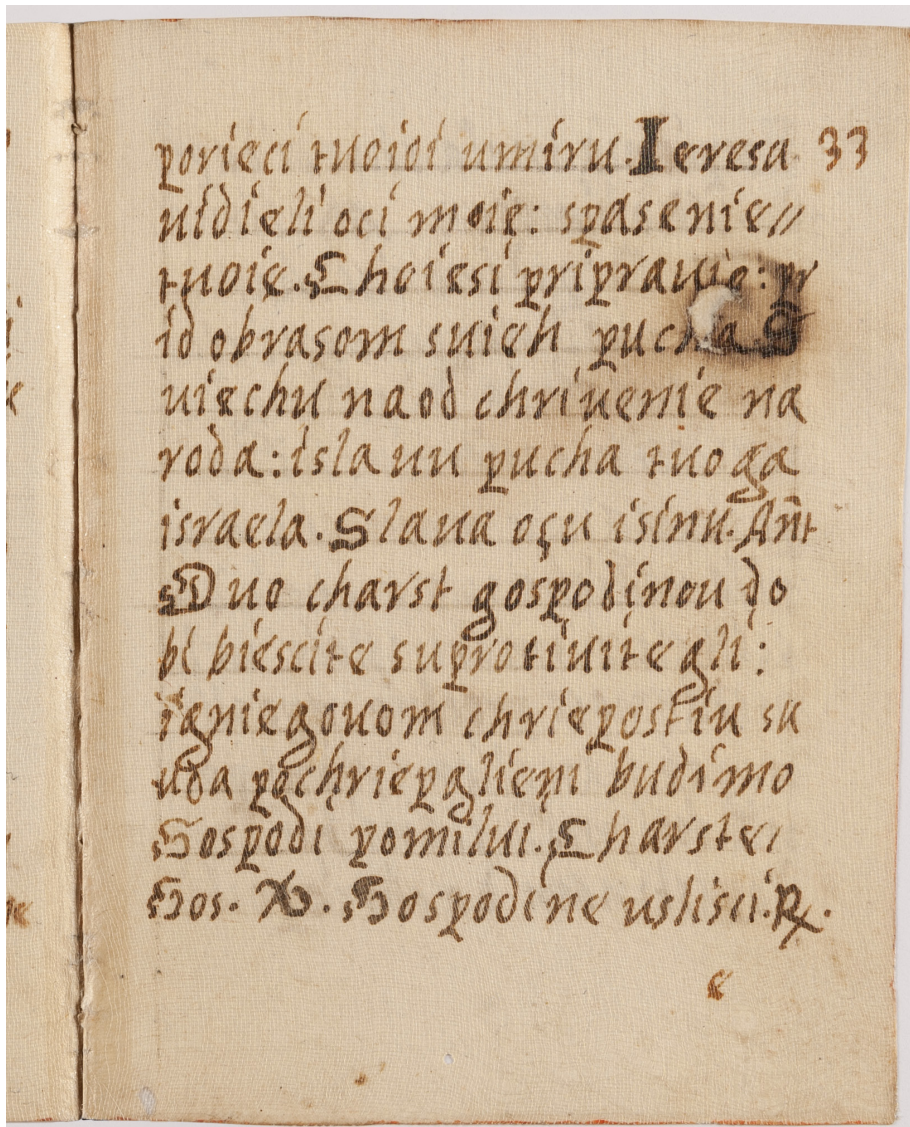 porieci tuoioi umiru. Ieresa 33
uidieli oci moie: spasenie//
tuoie. Choiesi priprauio: pr
id obrasom suieh pucha S
uiechu naod chriuenie na
roda: islauu pucha tuoga
israela. Slaua oçu isinu. Ant
Duo charst gospodinou do
bi biescite suprotiuitegli:
iegniegouom chriepostiu sa
uda pochriepglieni budimo
Gospodi pomilui. Charste
Gos. V. Gospodine uslisci. R.